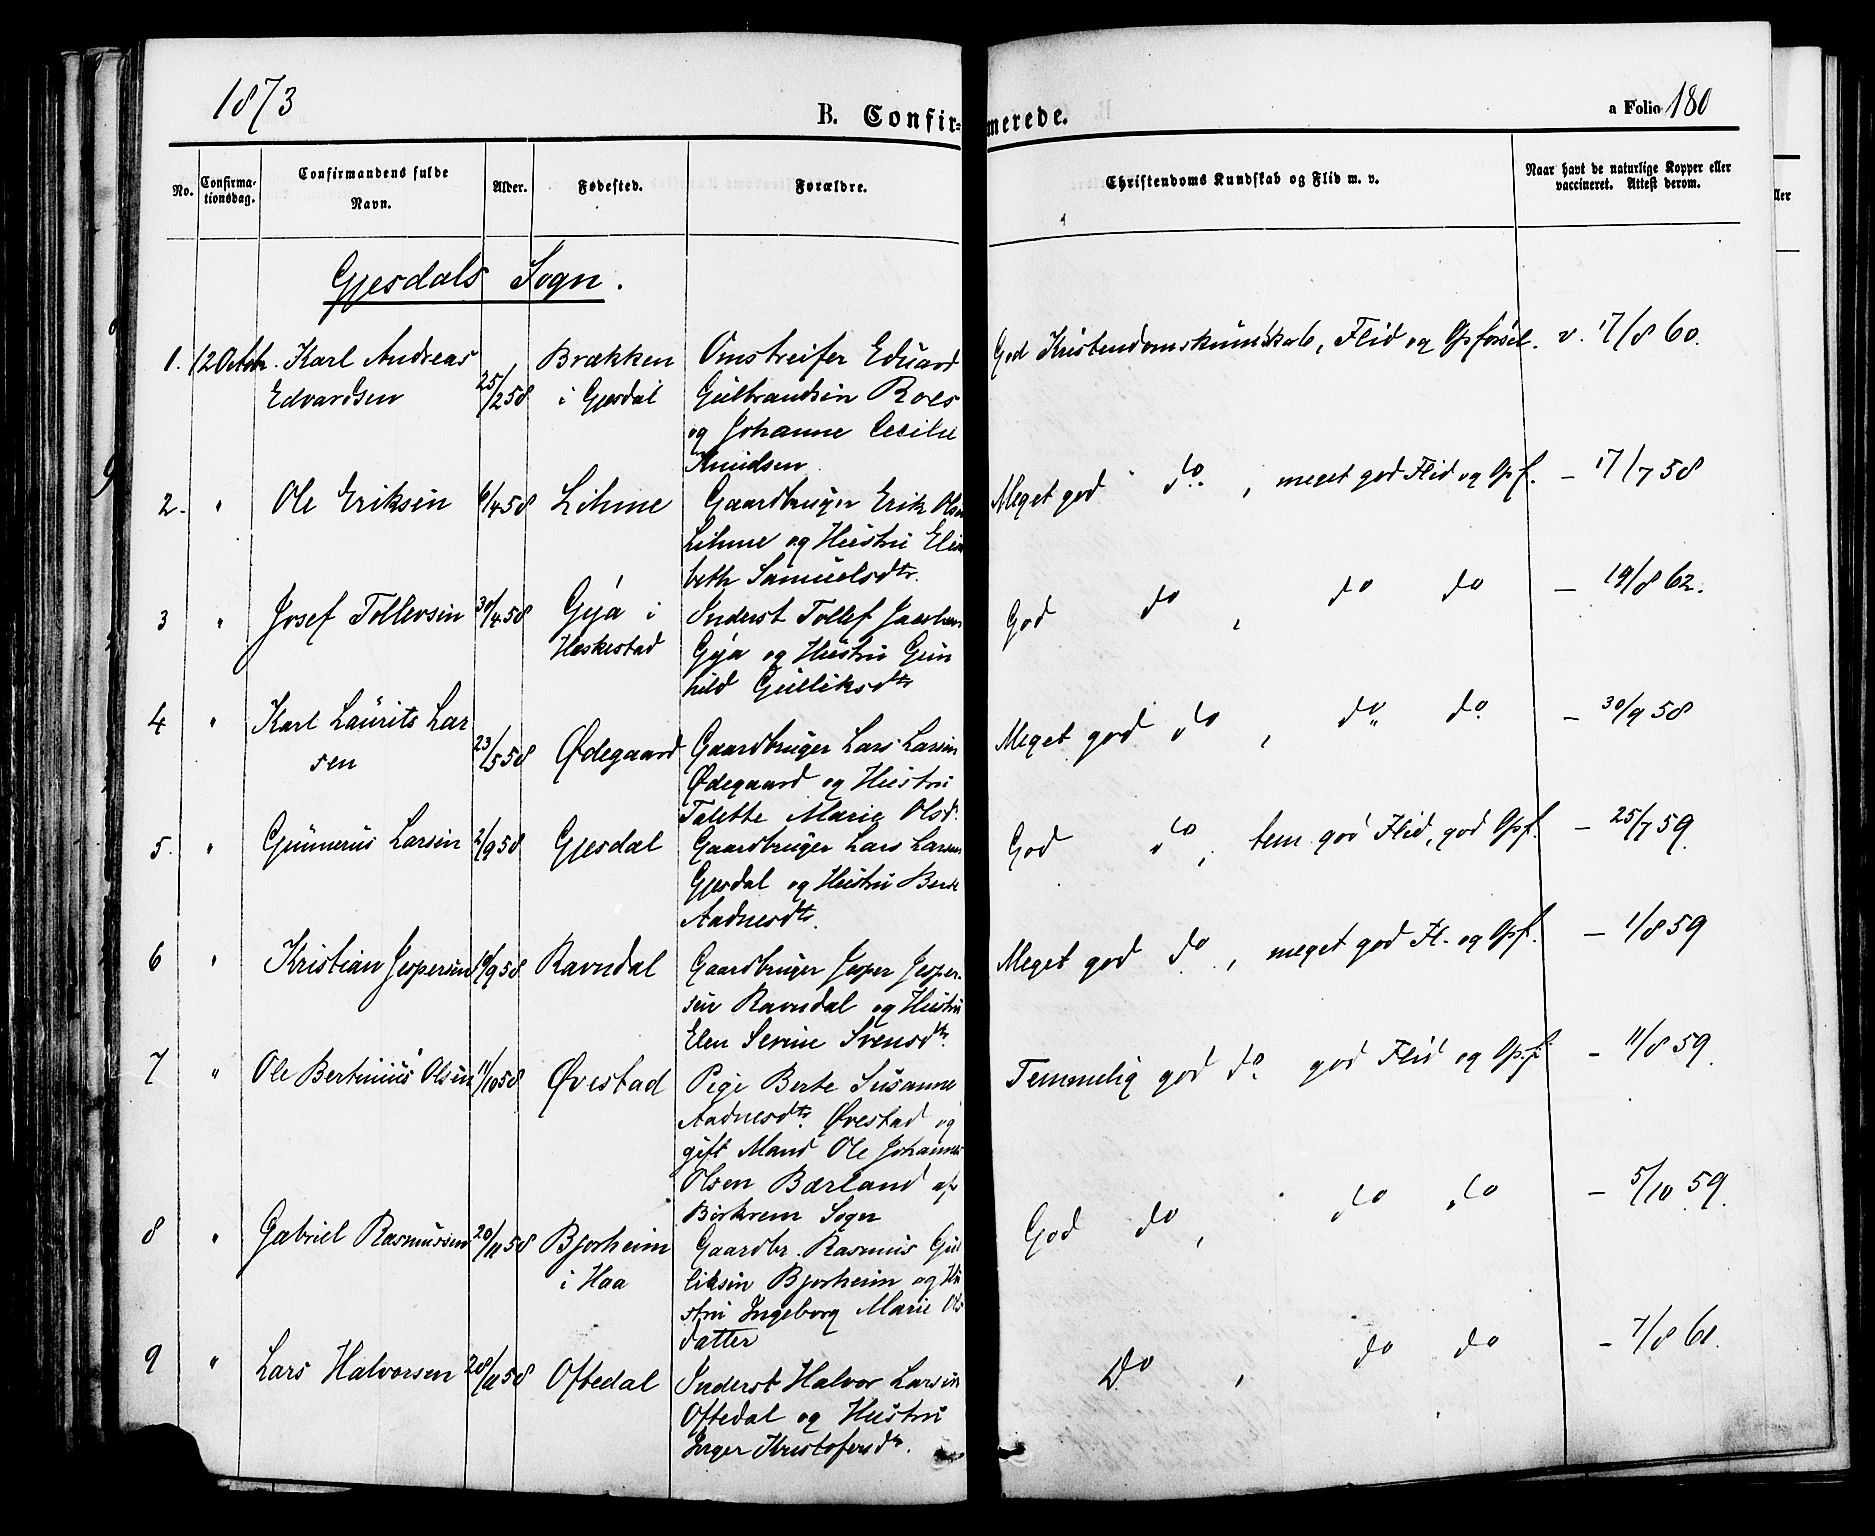 1873
B. Confirmerede.
a Folio 180
No. Confirmationsdag. Confirmandens fulde Navn. Alder. Fødested. Forældre. Christendoms Kundskab og Flid m. v. Naar havt de naturlige Kopper eller vaccineret. Attest derom.
Gjesdals Sogn.
1. 12 Octbr. Karl Andreas Brækken Omstreifer Eduard God Kristendomskundskab, Flid og Opførsel. v. 17/8 60.
Edvardsen 25/2 58 i Gjesdal Gulbrandsen Roes
og Johanne Cecilie
Knudsen
2. " Ole Eriksen 6/4 58 Lihme Gaardbruger Erik Olsen Meget god do. , meget god Flid og Opf. – 17/7 58
Lihme og Hustru Elisa
beth Samuelsdtr.
3 " Josef Tollevsen 30/4 58 Gya i Inderst Tollef Jacobsen God do , do do – 19/8 62.
Heskestad Gya og Hustru Gun
hild Gulliksdtr
4 " Karl Laurits Lar Meget god do , do do. – 30/9 58
sen 23/5 58 Ødegaard Gaardbruger Lars Larsen
Ødegaard og Hustru
Talette Marie Olsd.
5. " Gunnerus Larsen 2/9 58 Gjesdal Gaardbruger Lars Larsen God do , tem. god Flid, god Opf. – 25/7 59.
Gjesdal og Hustru
Aadnesdtr.
6 " Kristian Jespersen 19/9 58 Ravndal Gaardbruger Jesper Jesper- Meget god do , meget god Fl. og Opf. – 1/8 59
sen Ravndal og Hustru
Elen Serine Svensdtr.
7 " Ole Bertinius Olsen 11/10 58 Øvestad Pige Berte Susanne Temmelig god do. god Flid og Opf. – 11/8 59.
Aadnesdtr. Øvestad og
gift Mand Ole Johannes
Olsen Bærland af
Birkrem Sogn
8 " Gabriel Rasmussen 20/11 58 Bjorheim Gaardbr. Rasmus Gul God do , do do – 5/10 59.
i Haa liksen Bjorheim og Hu
stru Ingeborg Marie Ols
datter
9 " Lars Halvorsen 28/11 58 Oftedal Inderst Halvor Larsen Do , do do – 7/8 61.
Oftedal og Hustru
Inger Kristofersdtr.